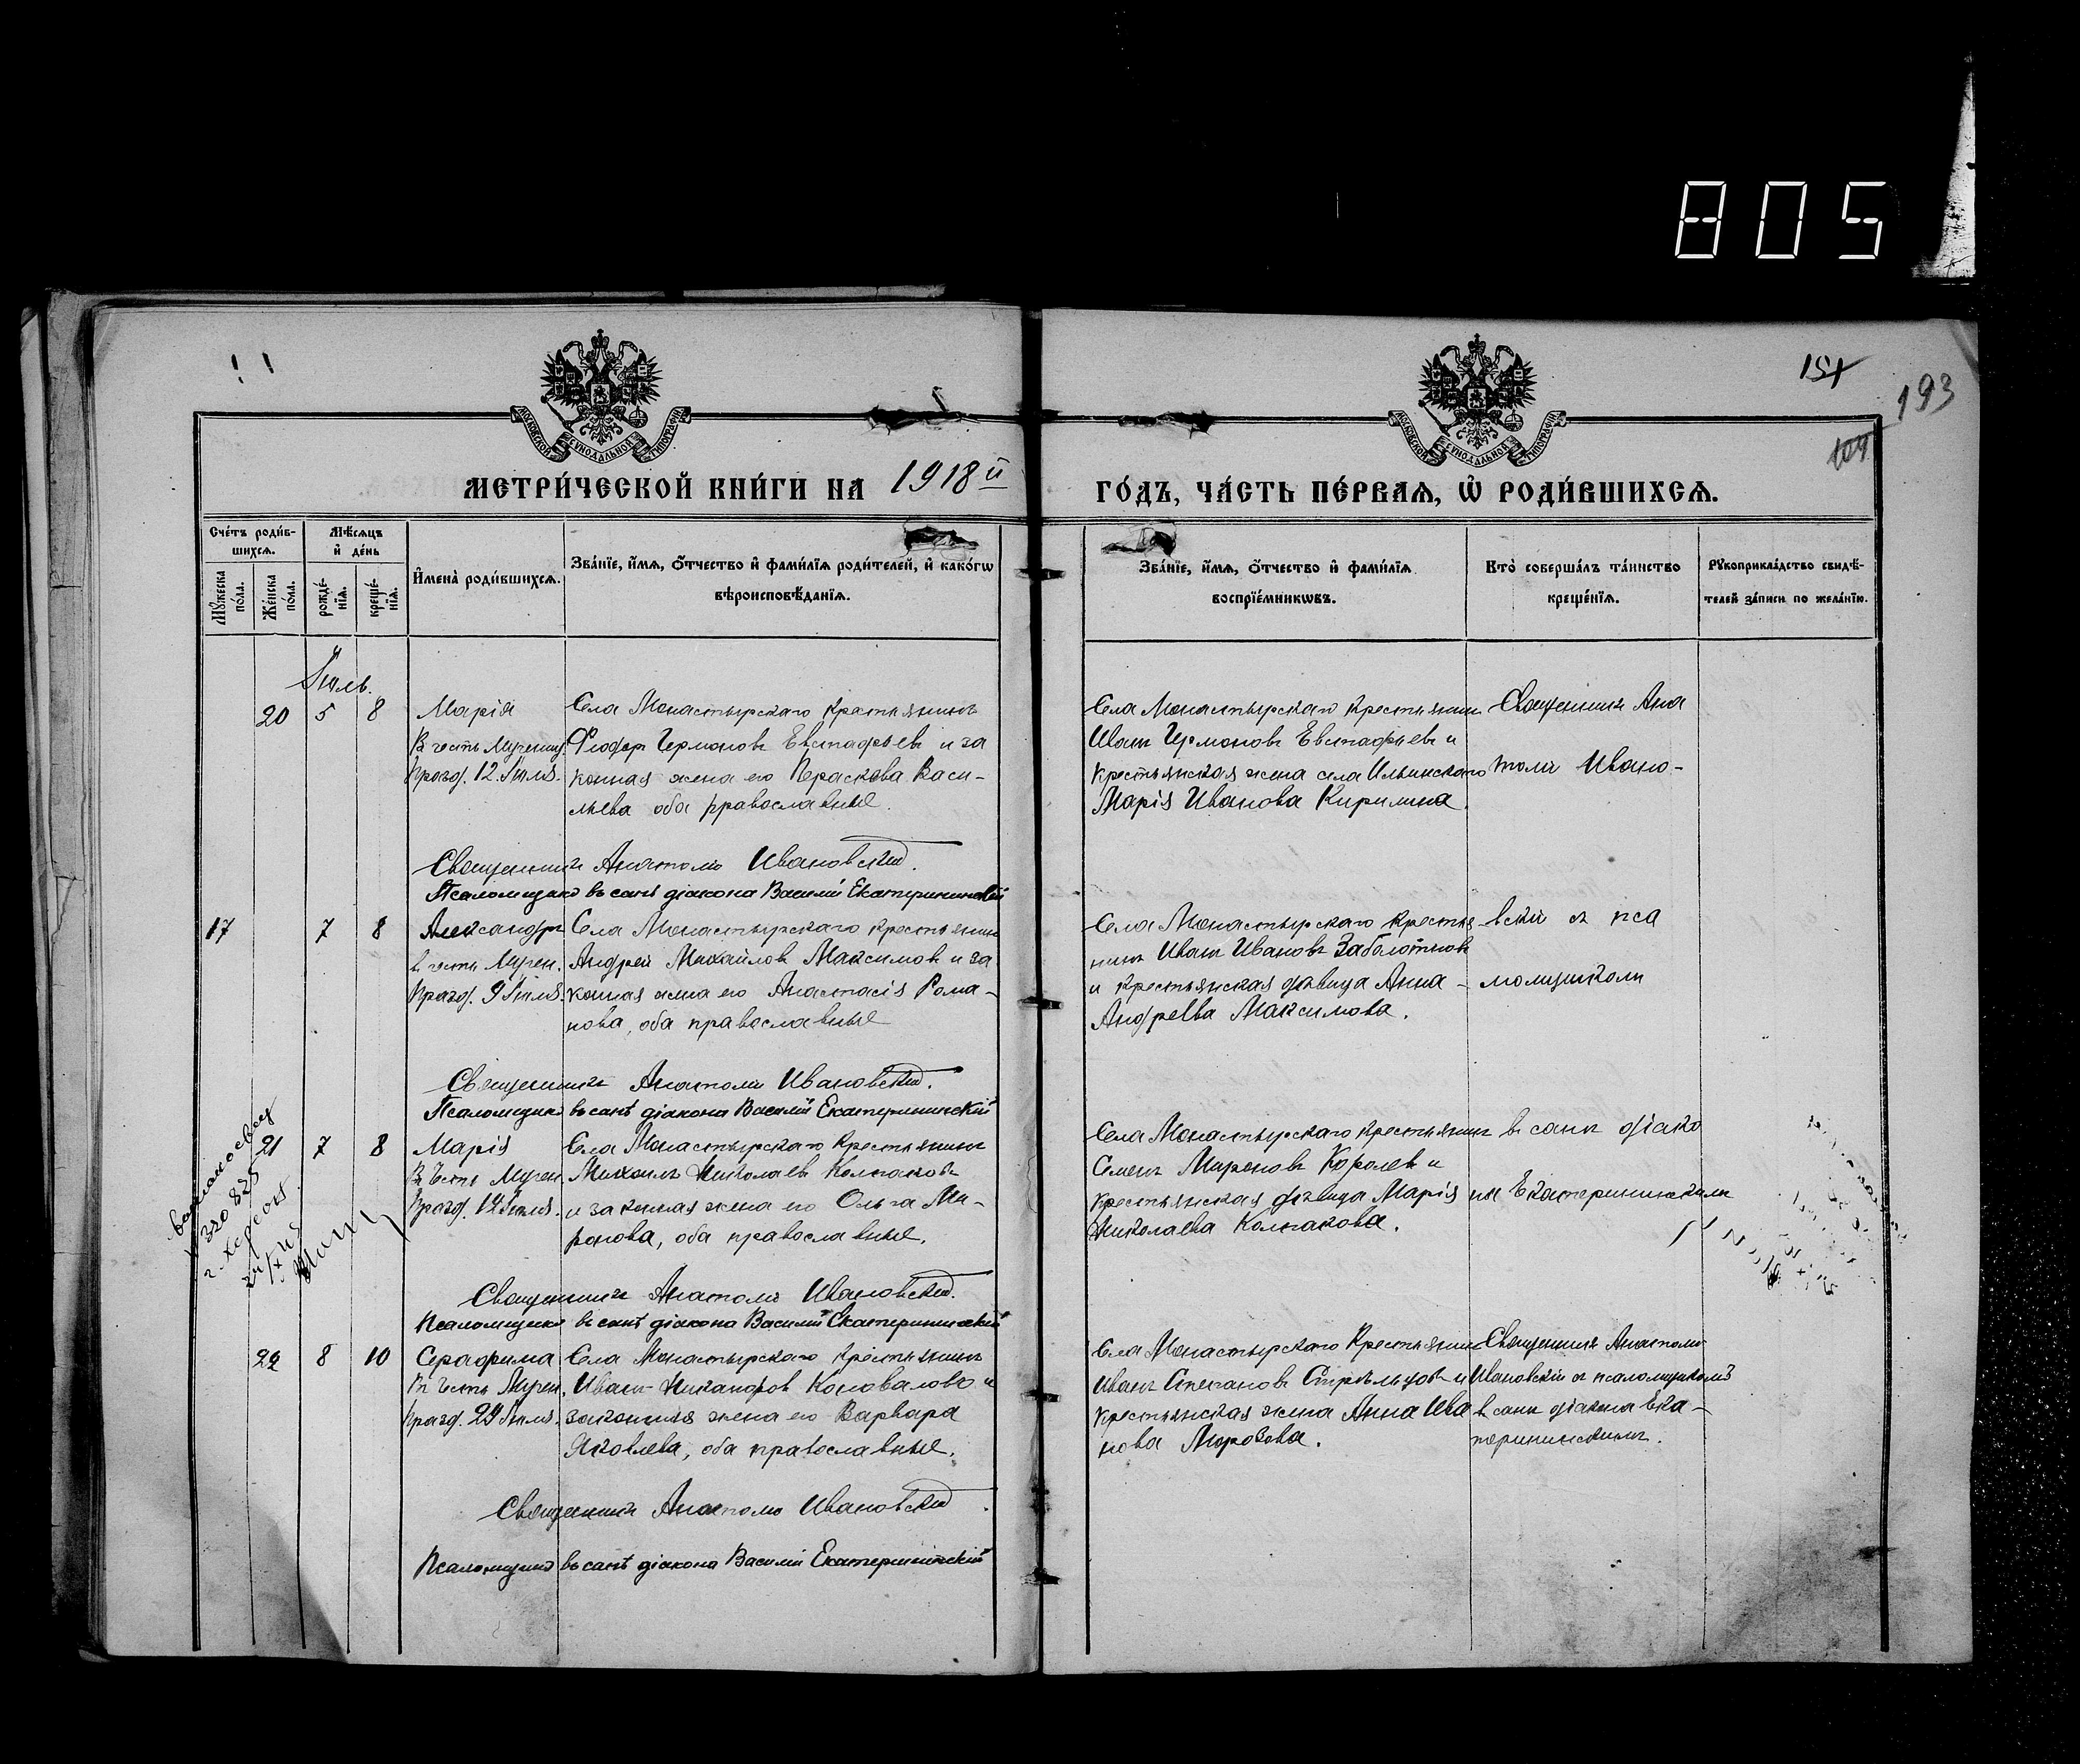 805
151
193
104
МОСКОВСКОЙ СУНОДАЛЬНОЙ ТИПОГРАФІИ
МОСКОВСКОЙ СУНОДАЛЬНОЙ ТИПОГРАФІИ
МЕТРИ́ЧЕСКОЙ КНИ́ГИ НА 1918й
ГО́ДЪ, ЧА́СТЬ ПЕ́РВАЯ, Ѡ҆ РОДИ́ВШИХСЯ.
Сче́тъ роди́в-
шихся.
Мѣ́сяцъ
и҆ де́нь
Мꙋ́жеска по́ла.
Же́нска по́ла.
рожде́-
нїя.
креще́-
нїя.
И҆мена̀ роди́вшихся.
Зва́нїе, и҆́мя, ѻ҆́тчество и҆ фами́лїя роди́телей, и҆ како́гѡ
вѣроисповѣ́данїя.
Зва́нїе, и҆́мя, ѻ҆́тчество и҆ фами́лїя
воспрїе́мникѡвъ.
Кто̀ соверша́лъ та́инство
креще́нїя.
Рꙋкоприкла́дство свидѣ́-
телей за́писи по жела́нїю.
Іюль.
20 5 8 Марія
В честь Мучениц.
Празд. 12 Іюля.
Села Монастырскаго крестьянинъ
Феодор Гермоновъ Евстафьевъ и за
конная жена его Пераскева Васи-
льева оба православные.
Села Монастырскаго крестьянин
Иван Гермоновъ Евстафьевъ и
крестьянская жена села Ильинскаго
Марія Иванова Кирилина.
Священник Ана
толій Ивано-
Священникъ Анатолій Ивановский.
Псаломщикъ въ санѣ діакона Василій Екатерининскій
17 7 8 Александръ
в честь Мучен.
Празд. 9 Іюля.
Села Монастырскаго крестьянин
Андрей Михайлов Максимов и за
конная жена его Анастасія Рома-
нова, оба православные
Села Монастырскаго крестья-
нинъ Иван Ивановъ Заболотновъ
и крестьянская дѣвица Анна
Андреева Максимова.
вский съ пса
ломщиком
Священникъ Анатолій Ивановский.
Псаломщикъ въ санѣ діакона Василій Екатерининскій
330825
21 7 8 Марія
В Честь Мучен.
Празд. 12 Іюля.
Села Монастырскаго крестьянинъ
Михаилъ Николаевъ Колпаковъ
и законная жена его Ольга Ми-
ронова, оба православные.
Села Монастырскаго крестьянинъ
Семенъ Мироновъ Королев и
крестьянская дѣвица Марія
Николаева Колпакова.
в сане діако
на Екатерининским
Священникъ Анатолій Ивановский.
Псаломщикъ въ санѣ діакона Василій Екатерининскій
22 8 10 Серафима
В Честь Мучен.
Празд. 29 Іюля.
Села Монастырскаго крестьянинъ
Иван Никаноров Коновалов и
законная жена его Варвара
Яковлева, оба православные.
Села Монастырскаго Крестьянин
Иванъ Степановъ Стрѣльцовъ и
крестьянская жена Анна Ива
нова Морозова.
Священник Анатолій
Ивановскій съ псаломщикомъ
в санѣ діакона Ека-
терининскимъ.
Священникъ Анатолій Ивановский.
Псаломщикъ въ санѣ діакона Василій Екатерининскій